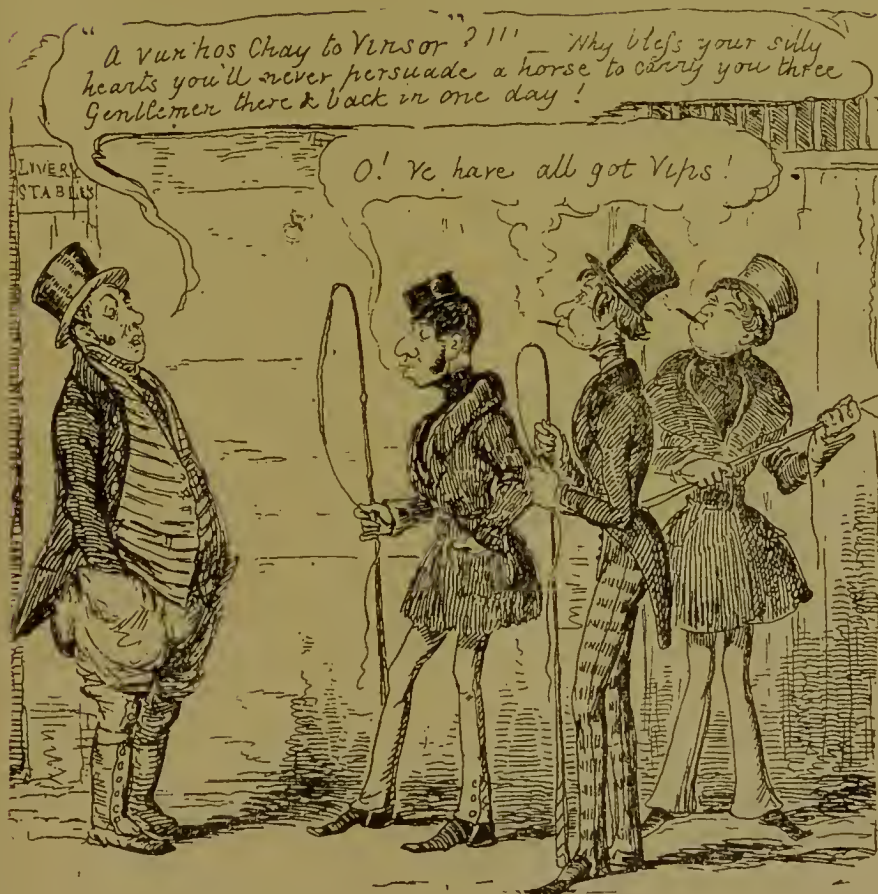 "A vun'hos Chay to Vinsor"?!!! _ Why bless your silly
hearts you'll never persuade a horse to carry you three
Gentlemen there & back in one day!
O! Ve have all got Vips!
LIVERY
STABLES